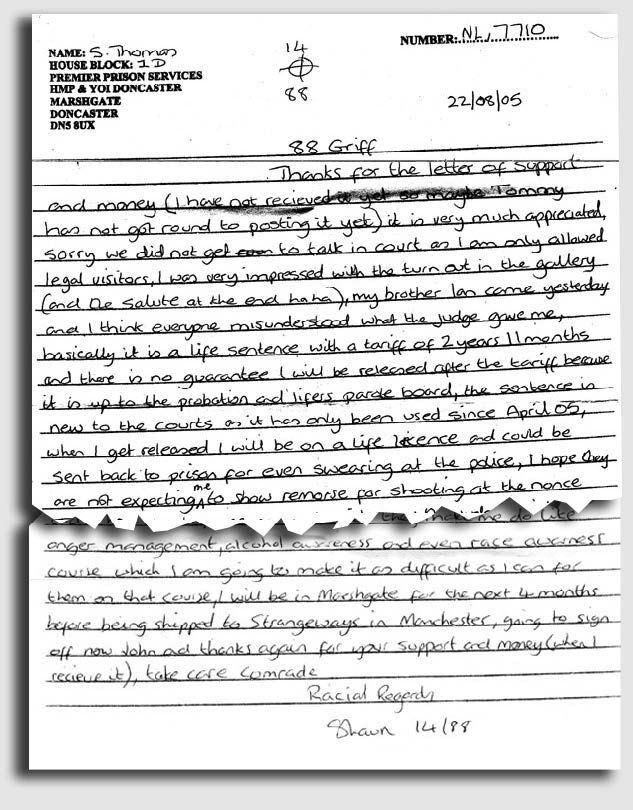 NAME: S. Thomas
HOUSE BLOCK: 1D
PREMIER PRISON SERVICES
HMP & YOI DONCASTER
MARSHGATE
DONCASTER
DN5 8UX
14
88
NUMBER: NL,7710
22/08/05
88 Griff
Thanks for the letter of support
and money (I have not recieved it yet so maybe Tommy
has not got round to posting it yet) it is very much appreciated,
sorry we did not get to talk in court as I am only allowed
legal visitors, I was very impressed with the turn out in the gallery
(and the salute at the end haha), my brother Ian came yesterday
and I think everyone misunderstood what the judge gave me,
basically it is a life sentence with a tariff of 2 years 11 months
and there is no guarantee I will be released after the tariff because
it is up to the probation and lifers parole board, the sentence in
new to the courts as it has only been used since April 05,
when I get released I will be on a life licence and could be
sent back to prison for even swearing at the police, I hope they
are not expecting me to show remorse for shooting at the nonce
me do like
anger management, alcohol awareness and even race awarness
course which I am going to make it as difficult as I can for
them on that course, I will be in Marshgate for the next 4 months
before being shipped to Strangeways in Manchester, going to sign
off now John and thanks again for your support and money (when I
recieve it), take care comrade
Racial Regards
Shaun 14/88